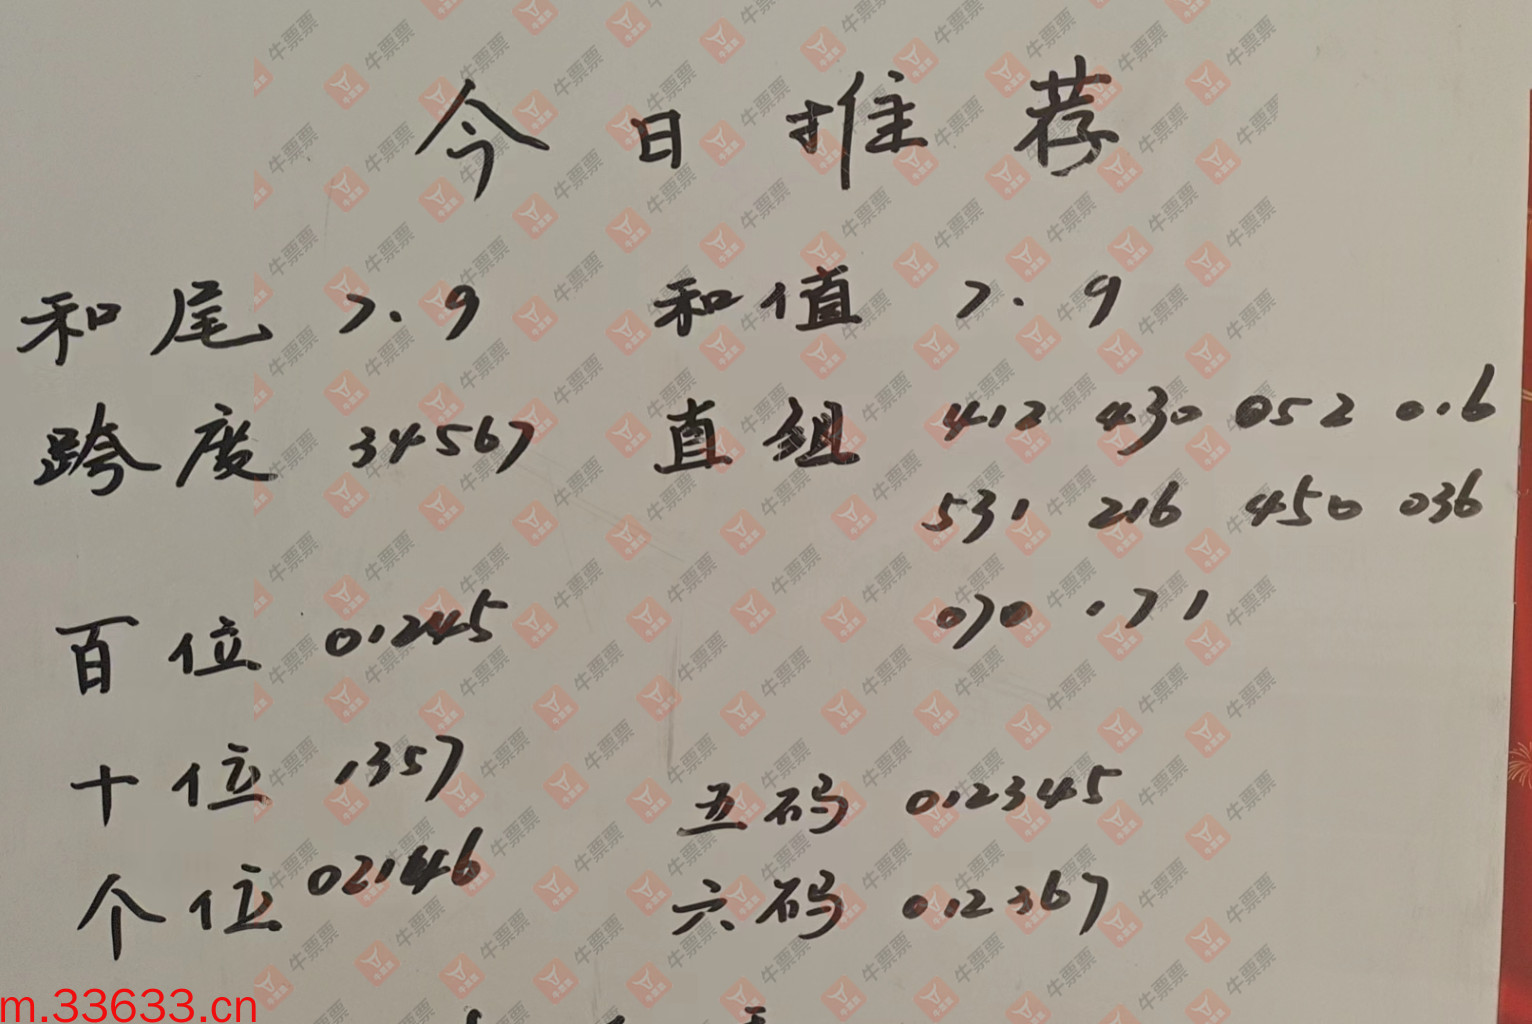 今日推荐
和尾 7.9 和值 7.9
跨度 34567 直组 412 430 052 016
531 216 450 036
百位 01245 070 171
十位 1357 五码 012345
个位 02146 六码 012367
m.33633.cn
牛票票